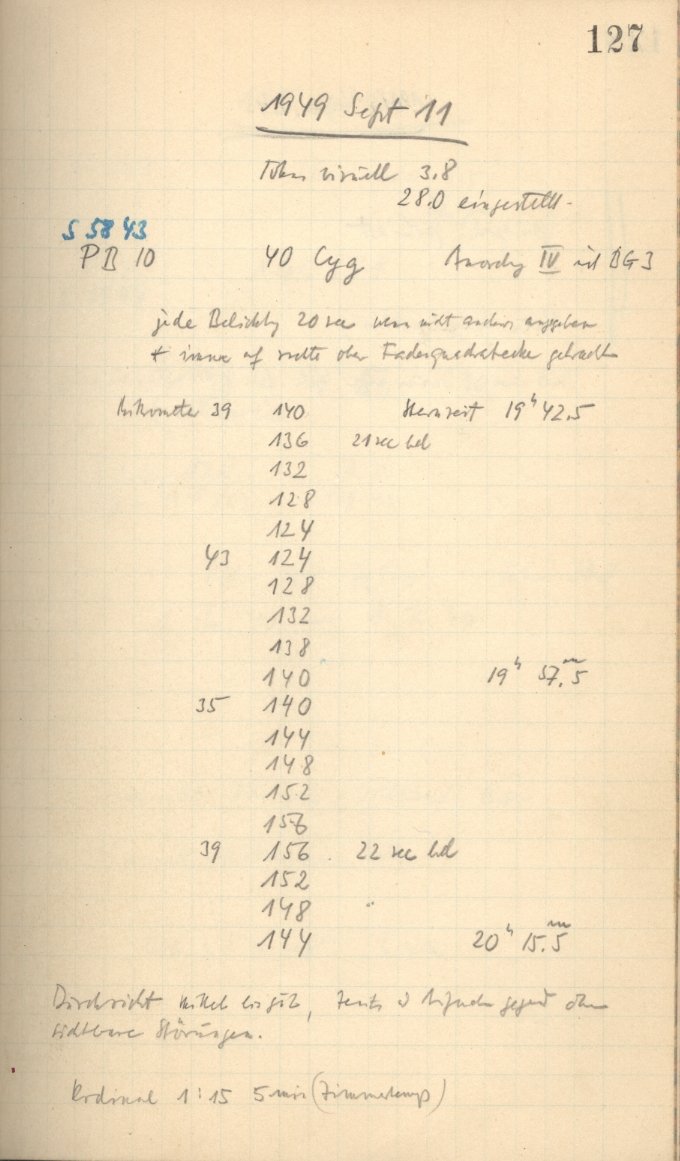 127
1949 Sept 11
Fokus visuell 3.8
28.0 eingestellt.
S 5843
PB 10 40 Cyg Anordng IV mit BG3
jede Belichtg 20 sec wenn nicht anders angegeben
immer auf rechte obere Fadenquadratecke gebracht
Mikrometer 39 140 Sternzeit 19h 42.5
136 21 sec bel
132
128
124
43 124
128
132
138
140 19h 57.m5
35 140
144
148
152
156
39 156 22 sec bel
152
148
144 20h 15.m5
Durchsicht mittel bis gut, Zenit gegend ohne
sichtbare Störungen.
Rodinal 1:15 5 min (Zimmertemp)